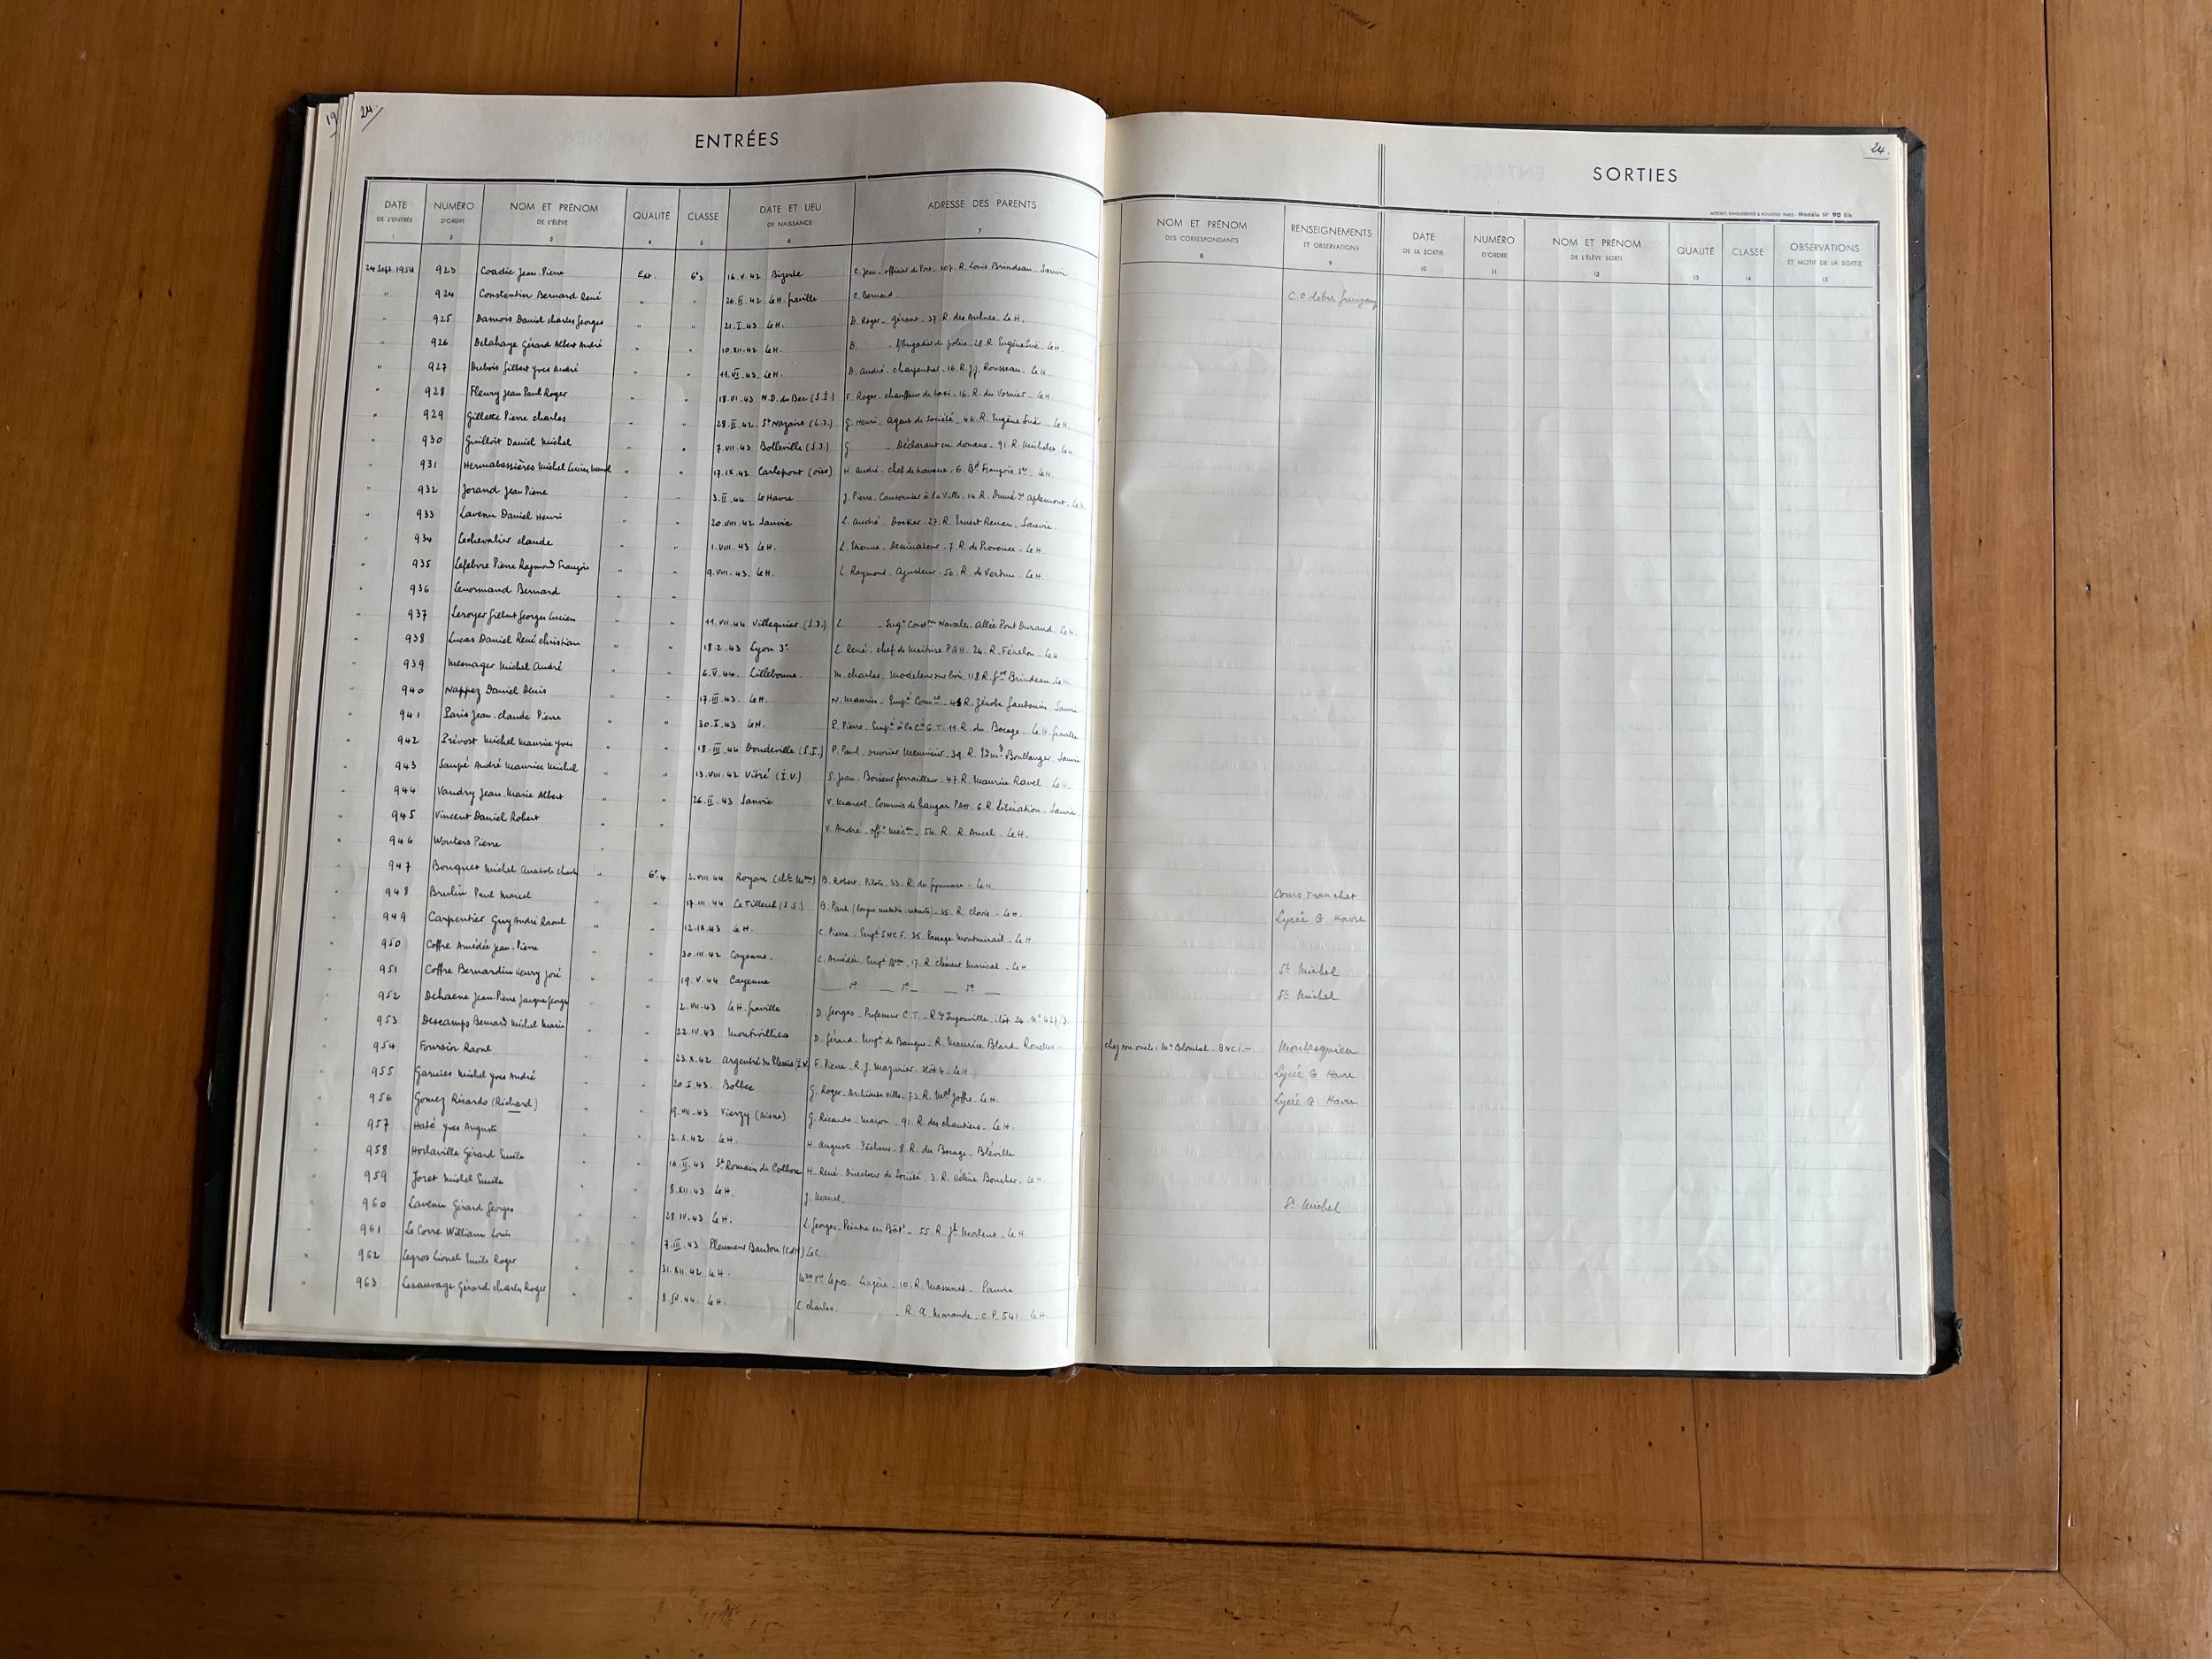 19
24
ENTRÉES
DATE DE L'ENTRÉE 1 NUMÉRO D'ORDRE 2 NOM ET PRÉNOM DE L'ÉLÈVE 3 QUALITÉ 4 CLASSE 5 DATE ET LIEU DE NAISSANCE 6 ADRESSE DES PARENTS 7
24 Sept. 1954 923 Coadic Jean-Pierre Ext. 6e3 16.V.42 Bizerte C. Jean - officier de Port - 107. R. Louis Brindeau - Sanvic
" 924 Constentin Bernard René " " 26.II.42 Le H. Graville C. Bernard
" 925 Damois Daniel Charles Georges " " 21.I.43 Le H. D. Roger - gérant - 37 R. des Aulnes - Le H.
" 926 Delahaye Gérard Albert André " " 10.XII.42 Le H. D. - Brigadier de police - 28. R. Eugène Suë - Le H.
" 927 Dubois Gilbert Yves André " " 11.VI.43 Le H. D. André - charpentier - 16. R. J.J. Rousseau - Le H.
" 928 Fleury Jean Paul Roger " " 18.VI.43 N.D. du Bec (S.I.) F. Roger - chauffeur de taxi - 16. R. du Vornier - Le H.
" 929 Gillette Pierre Charles " " 28.II.42 St Nazaire (L.I.) G. Henri - Agent de Société - 46. R. Eugène Suë - Le H.
" 930 Guilloit Daniel Michel " " 7.VII.43 Bolleville (S.I.) G. - Déclarant en douane - 91. R. Michelet - Le H.
" 931 Hermabessières Michel Lucien " " 17.IX.42 Carlepont (Oise) H. André - chef de travaux - 6. Bd François 1er - Le H.
" 932 Jorand Jean Pierre " " 3.II.44 Le Havre J. Pierre - Cantonnier à la Ville - 14 R. Dumé d'Aplemont - Le H.
" 933 Lavenu Daniel Henri " " 20.VIII.42 Sanvic L. André - Docker - 27. R. Ernest Renan - Sanvic
" 934 Lechevalier Claude " " 1.VIII.43 Le H. L. Etienne - Dessinateur - 7. R. de Provence - Le H.
" 935 Lefebvre Pierre Raymond François " " 9.VIII.43 Le H. L. Raymond - Ajusteur - 56. R. de Verdun - Le H.
" 936 Lenormand Bernard " "
" 937 Leroyer Gilbert Georges Lucien " " 11.VII.44 Villequier (S.I.) L. - Ingr Constons Navales - Allée Pont Durand - Le H.
" 938 Lucas Daniel René Christian " " 18.2.43 Lyon 3e L. René - chef de Maîtrise PAH - 24. R. Fénelon - Le H.
" 939 Mesnager Michel André " " 6.V.44 Lillebonne M. Charles - Modeleur sur bois - 118 R. Brindeau - Le H.
" 940 Nappez Daniel Denis " " 17.III.43 Le H. N. Maurice - Empé Comce - 45 R. Zénobe Sanvic
" 941 Paris Jean-Claude Pierre " " 30.I.43 Le H. P. Pierre - Empé à la Cie G.T. - 11. R. du Bocage - Le H. Graville
" 942 Prévost Michel Maurice Yves " " 18.III.44 Doudeville (S.I.) P. Paul - ouvrier Menuisier - 39. R. Edmd Boullanger - Sanvic
" 943 Saupé André Maurice Michel " " 13.VIII.42 Vitré (I.V.) S. Jean - Boiseur ferrailleur - 47. R. Maurice Ravel - Le H.
" 944 Vaudry Jean-Marie Albert " " 26.II.43 Sanvic V. Marcel - Commis de hangar PAH - 6. R. Libération - Sanvic
" 945 Vincent Daniel Robert " " V. André - offr Mécen - 54. R. R. Ancel - Le H.
" 946 Wouters Pierre "
" 947 Bouquet Michel Anatole Charles " 6e4 2.VIII.44 Royan (Chte Mme) B. Robert - Pilote - 33. R. du Gymnase - Le H
" 948 Brulin Paul Marcel " 17.III.44 Le Tilleul (S.I.) B. Paul - 35. R. Clovis - Le H.
" 949 Carpentier Guy André Raoul " " 12.IX.43 Le H. C. Pierre - Empé SNCF. 35. Passage Montmirail - Le H.
" 950 Coffre Amédée Jean-Pierre " " 30.III.42 Cayenne C. Amédée - 17. R. Clément Marical - Le H.
" 951 Coffre Bernardin Henry José " " 19.V.44 Cayenne — do — do — do —
" 952 Dehaene Jean-Pierre Jacques Georges " " 2.VII.43 Le H. Graville D. Georges - Professeur C.T. - R. d'Ingouville - îlot 24 - No 427/3.
" 953 Descamps Bernard Michel Marie " " 22.IV.43 Montivilliers D. Gérard - Empé de Banque - R. Maurice Blard Rouelles
" 954 Foursin Raoul " " 23.X.42 Argentré du Plessis (I.V.) F. Pierre - R. J. Mazurier - îlot 4 - Le H.
" 955 Garnier Michel Yves André " " 20.I.43 Bolbec G. Roger - Architecte ville - 73. R. Mal Joffre - Le H.
" 956 Gomez Ricardo (Richard) " " 9.VII.43 Vierzy (Aisne) G. Ricardo - Maçon - 91. R. des chantiers - Le H.
" 957 Haté Yves Auguste " " 2.X.42 Le H. H. Auguste - Pêcheur - 8. R. du Bocage - Bléville
" 958 Horlaville Gérard Emile " " 16.II.43 St Romain de Colbosc H. René - Directeur de Société - 3. R. Hélène Boucher - Le H.
" 959 Joret Michel Emile " " 8.XII.43 Le H. J. Marcel
" 960 Lavenu Gérard Georges " " 28.IV.43 Le H. L. Georges - Peintre en Bâtt - 55. R. Morlent - Le H.
" 961 Le Corre William Louis " " 7.III.43 Pleumeur Baudou (CdN) Le C
" 962 Legros Lionel Emile Roger " " 31.XII.42 Le H. Mme Vve Legros - Lingère - 10. R. Massenet - Sanvic
963 Lesauvage Gérard Charles Roger " " 8.IV.44 Le H. L. Charles - R. A. Marande - C.P. 541 - Le H.
24.
SORTIES
Modèle N° 90 Bis
NOM ET PRÉNOM DES CORRESPONDANTS 8 RENSEIGNEMENTS ET OBSERVATIONS 9 DATE DE LA SORTIE 10 NUMÉRO D'ORDRE 11 NOM ET PRÉNOM DE L'ÉLÈVE SORTI 12 QUALITÉ 13 CLASSE 14 OBSERVATIONS ET MOTIF DE LA SORTIE 15
C.C
Cours Tranchet
Lycée G. Havre
St Michel
St Michel
chez son oncle: Mr Colombel - BNCI - Montesquieu
Lycée G. Havre
Lycée G. Havre
St Michel